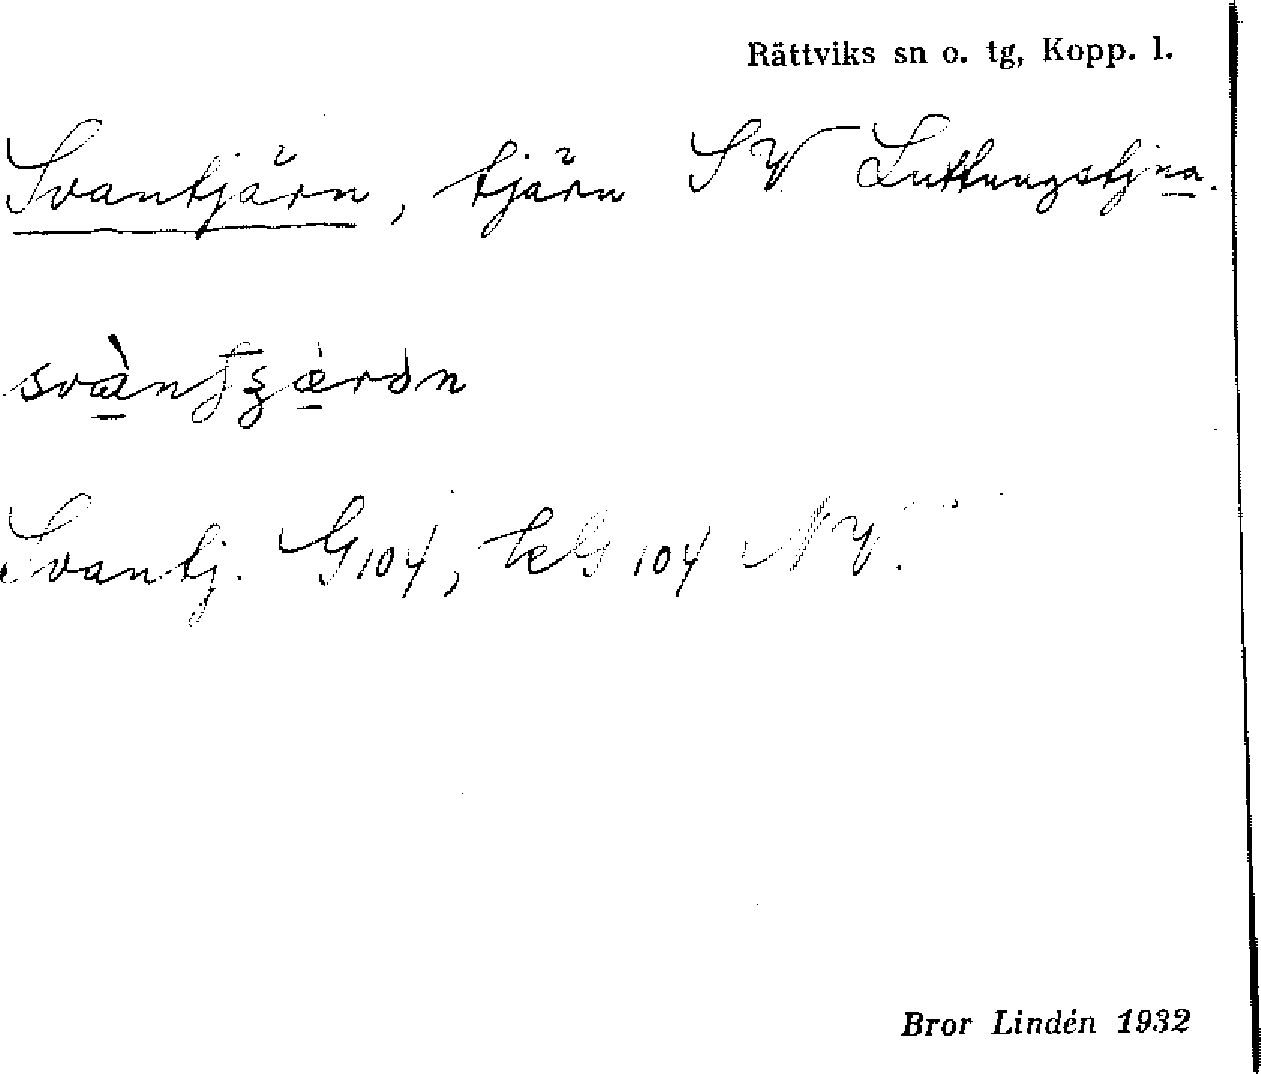 Rättviks sn o. tg, Kopp. l.
Svantjärn, tjärn SV Luttungstjna.
Svantj. G104, kG 104 NV.
Bror Lindén 1932